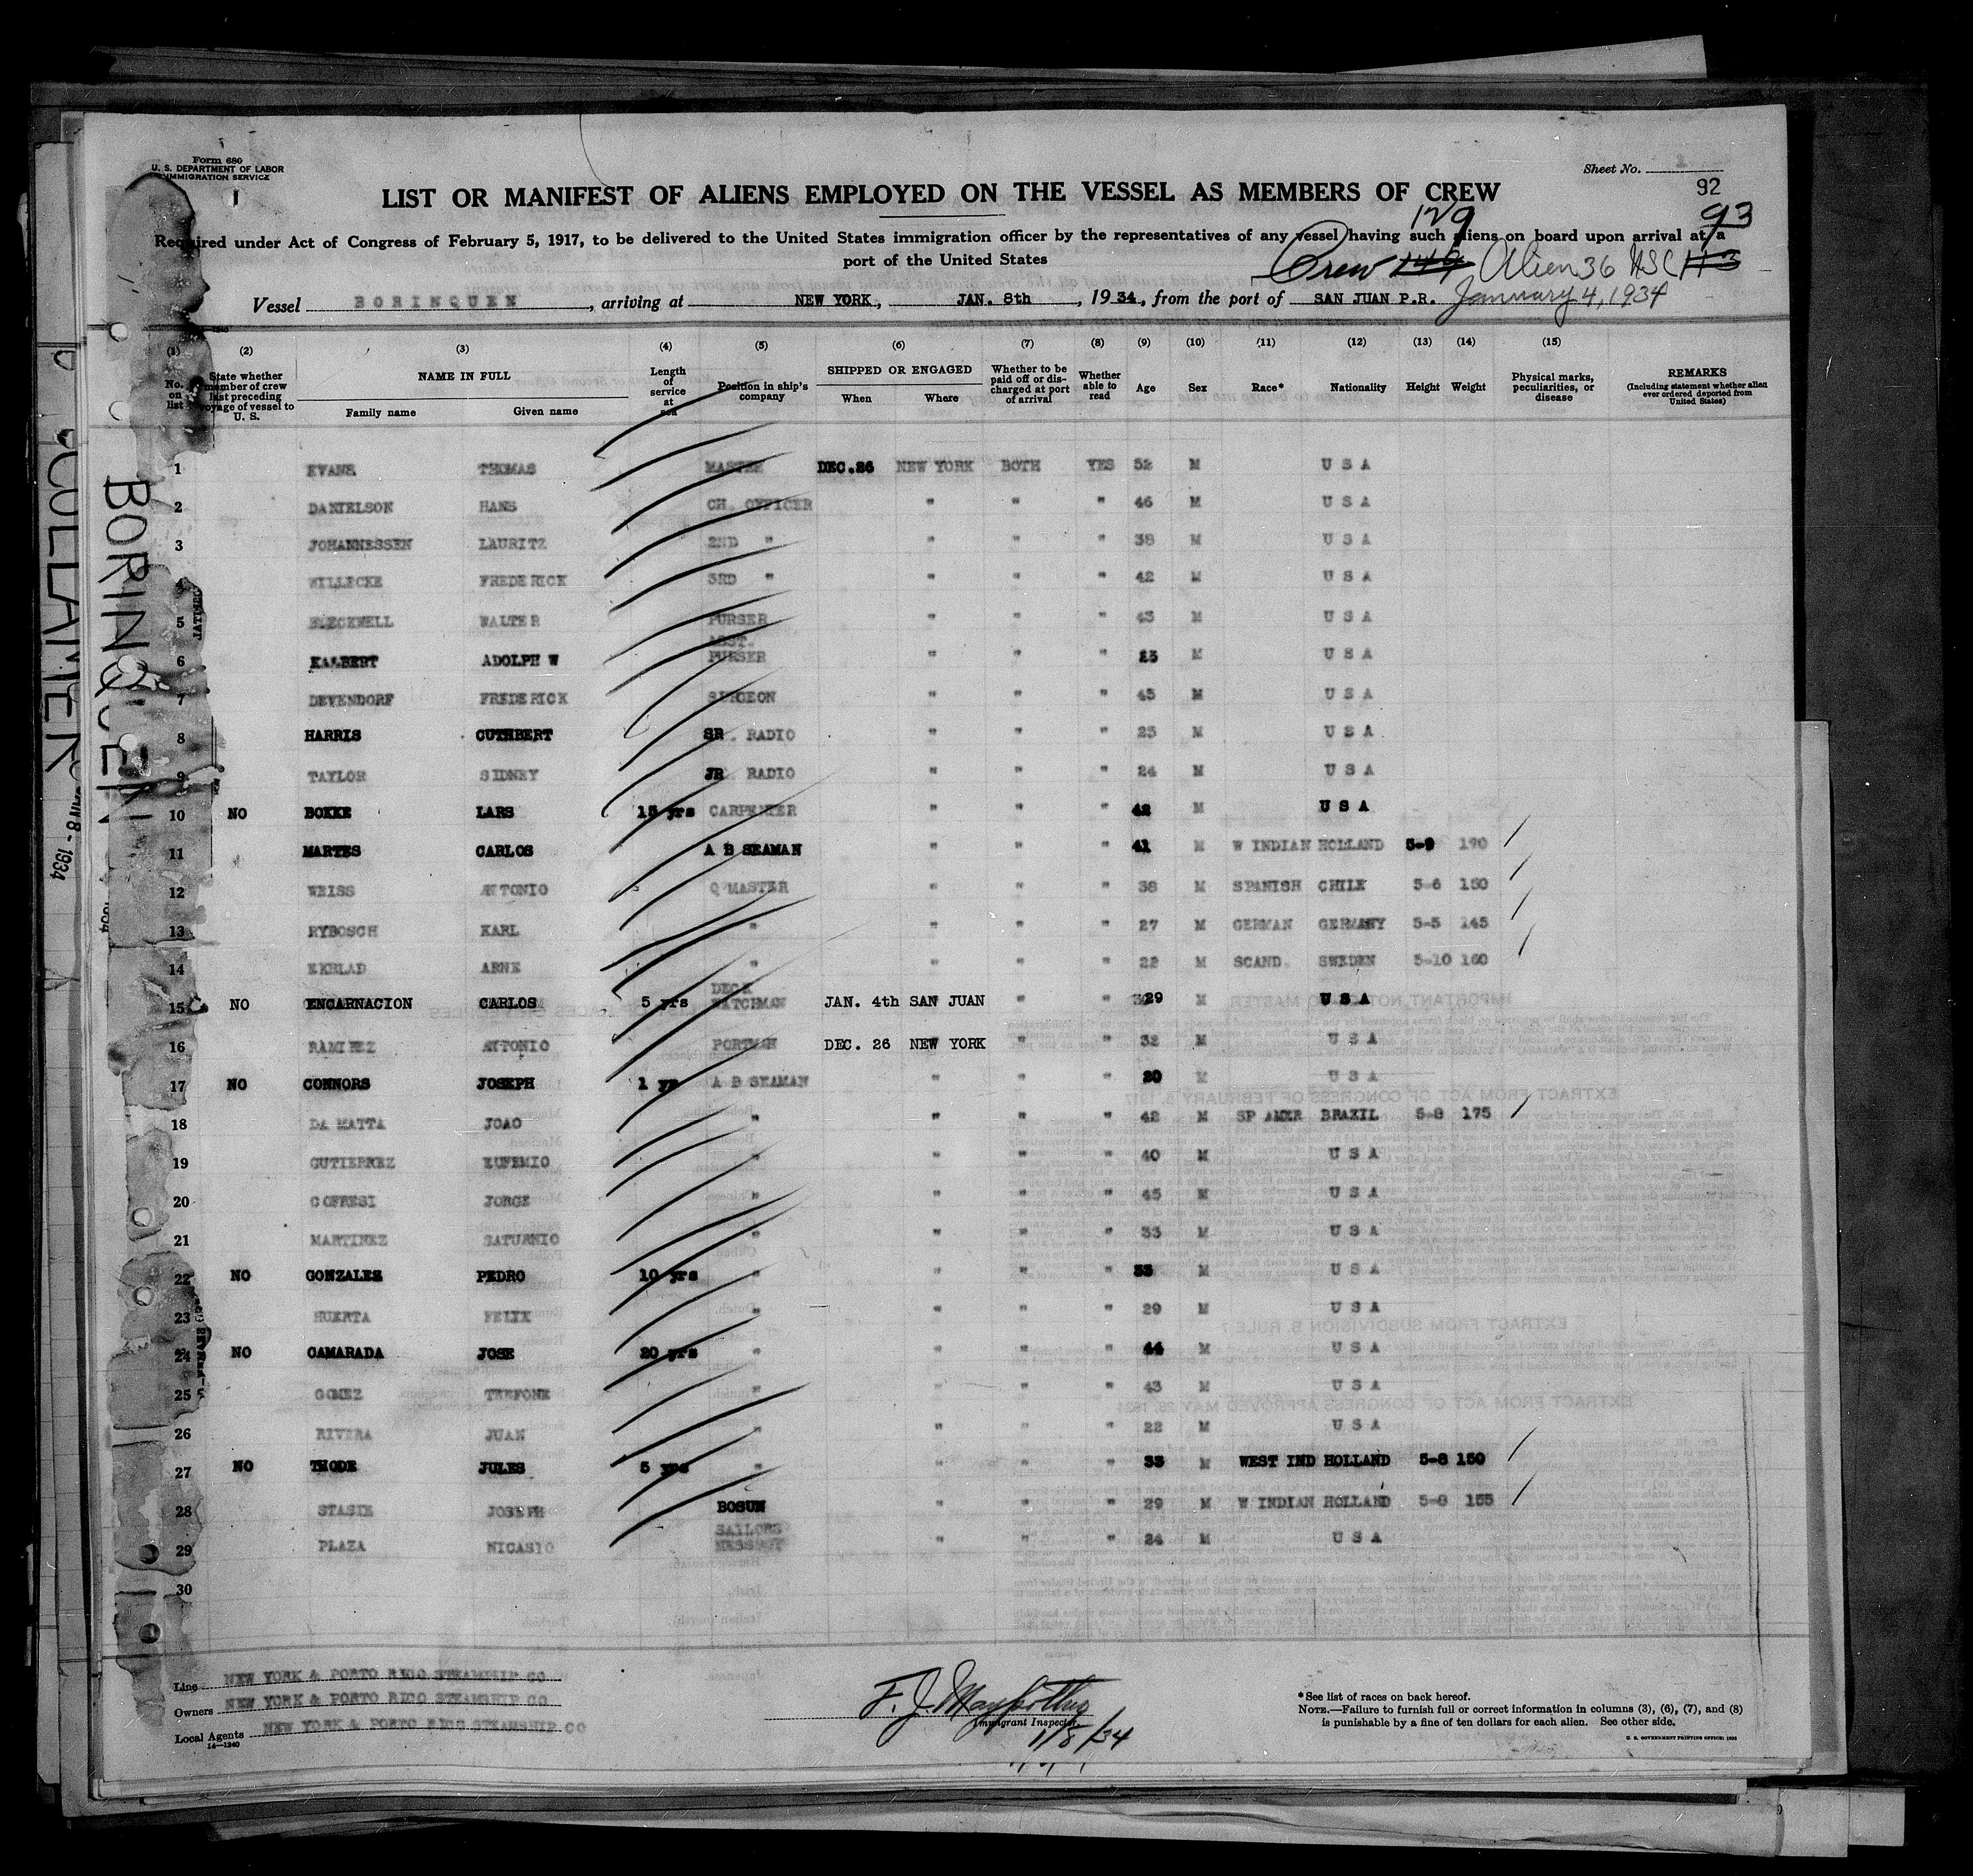 Form 680
U. S. DEPARTMENT OF LABOR
IMMIGRATION SERVICE
Sheet No.
LIST OR MANIFEST OF ALIENS EMPLOYED ON THE VESSEL AS MEMBERS OF CREW
92
93
129
Required under Act of Congress of February 5, 1917, to be delivered to the United States immigration officer by the representatives of any vessel having such aliens on board upon arrival at a
port of the United States
Crew 149 Alien 36 USC 113
Vessel BORINQUEN, arriving at NEW YORK, JAN. 8th, 1934, from the port of SAN JUAN P.R. January 4, 1934
(1) (2) (3) (4) (5) (6) (7) (8) (9) (10) (11) (12) (13) (14) (15)
No. on list State whether member of crew last preceding voyage of vessel to U. S. NAME IN FULL Family name Given name Length of service at sea Position in ship's company SHIPPED OR ENGAGED When Where Whether to be paid off or discharged at port of arrival Whether able to read Age Sex Race* Nationality Height Weight Physical marks, peculiarities, or disease REMARKS (Including statement whether alien ever ordered deported from United States)
1 EVANS THOMAS MASTER DEC.26 NEW YORK BOTH YES 52 M U S A
2 DANIELSON HANS CH. OFFICER " " " 46 M U S A
3 JOHANNESSEN LAURITZ 2ND " " " " 38 M U S A
4 WILLECKE FREDERICK 3RD " " " " 42 M U S A
5 WALTER PURSER " " " 43 M U S A
6 KALBERT ADOLPH W ASST. PURSER " " " 23 M U S A
7 DEVENDORF FREDERICK SURGEON " " " 45 M U S A
8 HARRIS CUTHBERT SR. RADIO " " " 25 M U S A
9 TAYLOR SIDNEY JR RADIO " " " 24 M U S A
10 NO BOKKE LARS 15 yrs CARPENTER " " " 42 M U S A
11 MARTES CARLOS A B SEAMAN " " " 41 M W INDIAN HOLLAND 5-9 170
12 WEISS ANTONIO Q'MASTER " " " 38 M SPANISH CHILE 5-6 150
13 RYBOSCH KARL " " " " 27 M GERMAN GERMANY 5-5 145
14 EKBLAD ARNE " " " " 22 M SCAND. SWEDEN 5-10 160
15 NO ENCARNACION CARLOS 5 yrs DECK WATCHMAN JAN. 4th SAN JUAN " " 29 M U S A
16 RAMIREZ ANTONIO DEC. 26 NEW YORK " " 32 M U S A
17 NO CONNORS JOSEPH 1 yr A B SEAMAN " " " 20 M U S A
18 DA MATTA JOAO " " " " 42 M SP AMER BRAZIL 5-8 175
19 GUTIERREZ EUFEMIO " " " " 40 M U S A
20 COFRESI JORGE " " " " 45 M U S A
21 MARTINEZ SATURNIO " " " " 33 M U S A
22 NO GONZALES PEDRO 10 yrs " " " " 33 M U S A
23 HUERTA FELIX " " " " 29 M U S A
24 NO CAMARADA JOSE 20 yrs " " " " 44 M U S A
25 GOMEZ TREFONE " " " " 43 M U S A
26 RIVERA JUAN " " " " 22 M U S A
27 NO THODE JULES 5 yrs " " " " 33 M WEST IND HOLLAND 5-8 150
28 STASIE JOSEPH BOSUN " " " 29 M W INDIAN HOLLAND 5-8 155
29 PLAZA NICASIO SAILORS MESSBOY " " " 24 M U S A
30
Line NEW YORK & PORTO RICO STEAMSHIP CO
Owners NEW YORK & PORTO RICO STEAMSHIP CO
Local Agents NEW YORK & PORTO RICO STEAMSHIP CO
14—1240
F. J.
Immigrant Inspector.
1/8/34
*See list of races on back hereof.
NOTE.—Failure to furnish full or correct information in columns (3), (6), (7), and (8)
is punishable by a fine of ten dollars for each alien. See other side.
U. S. GOVERNMENT PRINTING OFFICE: 1932
BORINQUEN
COLLAMER
JAN 8 - 1934